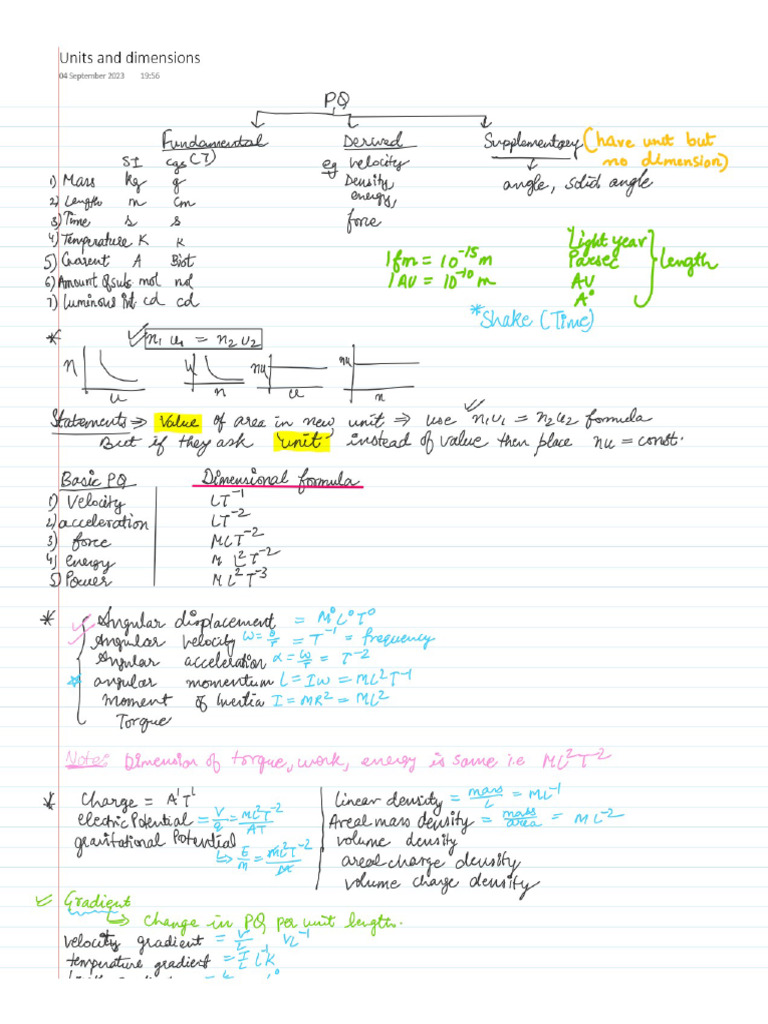 Units and dimensions
04 September 2023 19:56
P.Q
Fundamental Derived Supplementary (have unit but no dimension)
SI cgs(J) eg velocity angle, solid angle
1) Mass kg g Density
2) Length m cm energy,
3) Time s s force
4) Temperature K K
5) Current A Biot
6) Amount of subs mol mol
7) Luminous Int cd cd
1fm = 10⁻¹⁵ m
1AU = 10⁻¹⁰ m
Light year
Parsec
AU
A°
length
*Shake (Time)
* n₁u₁ = n₂u₂
n u u n nu u nu n
Statements ⇒ Value of area in new unit ⇒ use n₁u₁ = n₂u₂ formula
But if they ask "unit" instead of value then place nu = const.
Basic PQ Dimensional formula
1) Velocity LT⁻¹
2) acceleration LT⁻²
3) force MLT⁻²
4) energy ML²T⁻²
5) Power ML²T⁻³
* Angular displacement = M⁰L⁰T⁰
Angular velocity ω = θ/T = T⁻¹ = frequency
Angular acceleration α = ω/T = T⁻²
angular momentum L = Iω = ML²T⁻¹
moment of Inertia I = MR² = ML²
Torque
Note: Dimension of torque, work, energy is same i.e ML²T⁻²
* Charge = A¹T¹
electric Potential = V/q = ML²T⁻²/AT
gravitational Potential
↳ E/m = ML²T⁻²/M
linear density = mass/L = ML⁻¹
Areal mass density = mass/area = ML⁻²
volume density
areal charge density
volume charge density
✓ Gradient
↳ Change in PQ per unit length.
velocity gradient = V/L VL⁻¹
temperature gradient = L⁻¹K